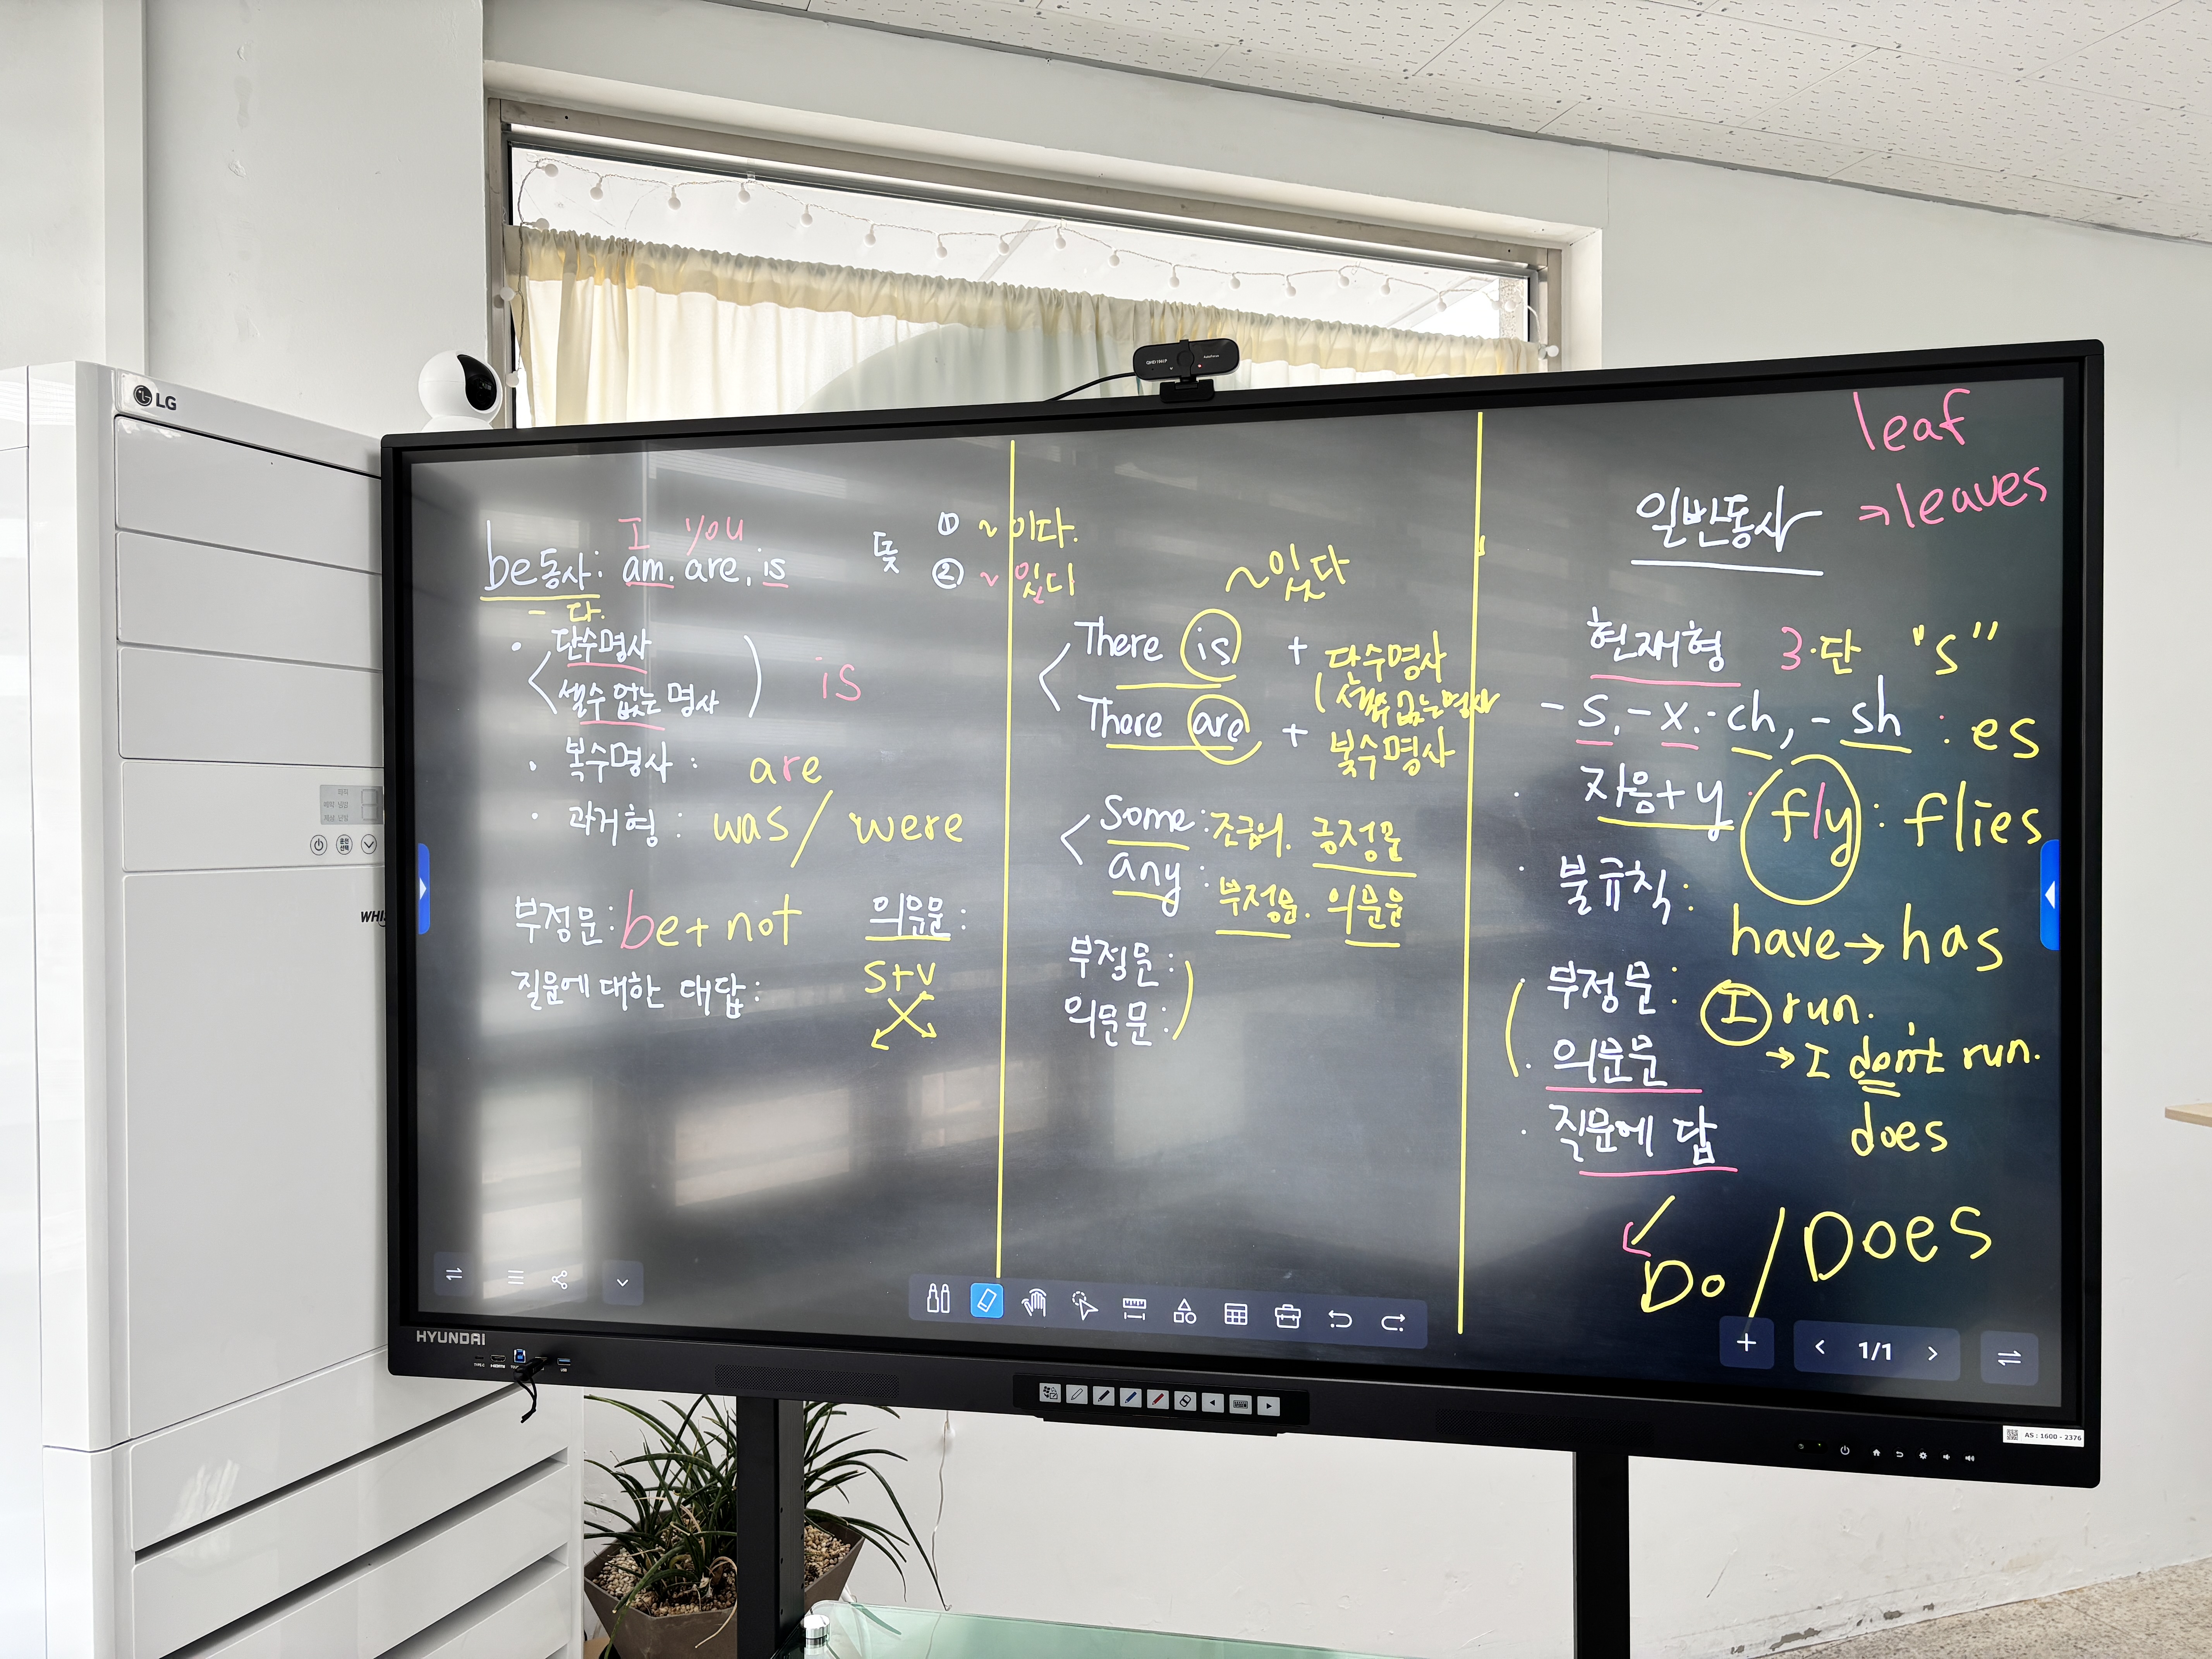 LG
I you
be동사: am. are, is
- 다.
뜻 ① ~이다.
② ~있다
• 단수명사
셀수 없는 명사
is
• 복수명사 : are
• 과거형 : was / were
부정문: be + not
의문문:
S+V
질문에 대한 대답:
~있다
There is + 단수명사
(셀수 없는 명사
There are + 복수명사
Some: 조금의. 긍정문
any: 부정문. 의문문
부정문:
의문문:
leaf
→ leaves
일반동사
현재형 3·단 "s"
-s, -x. -ch, -sh : es
• 자음+y fly : flies
• 불규칙:
have → has
부정문: I run.
→ I don't run.
• 의문문
does
• 질문에 답
Do / Does
1/1
HYUNDAI
AS : 1600 - 2376